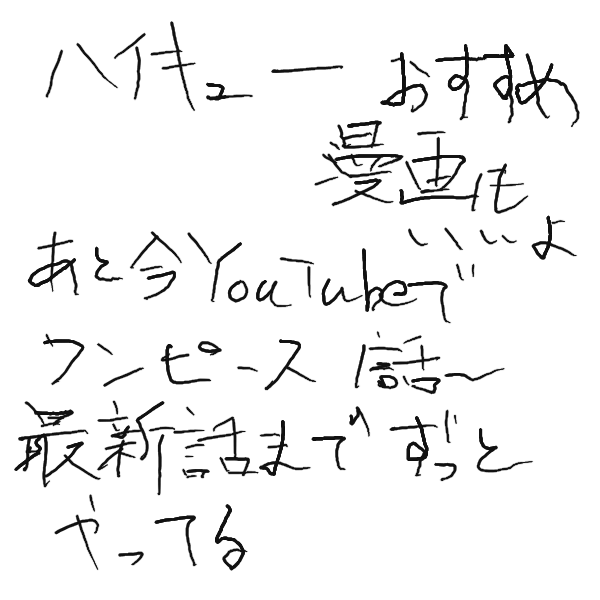 ハイキュー おすすめ
漫画も
いいよ
あと今YouTubeで
ワンピース 1話〜
最新話まで ずっと
やってる